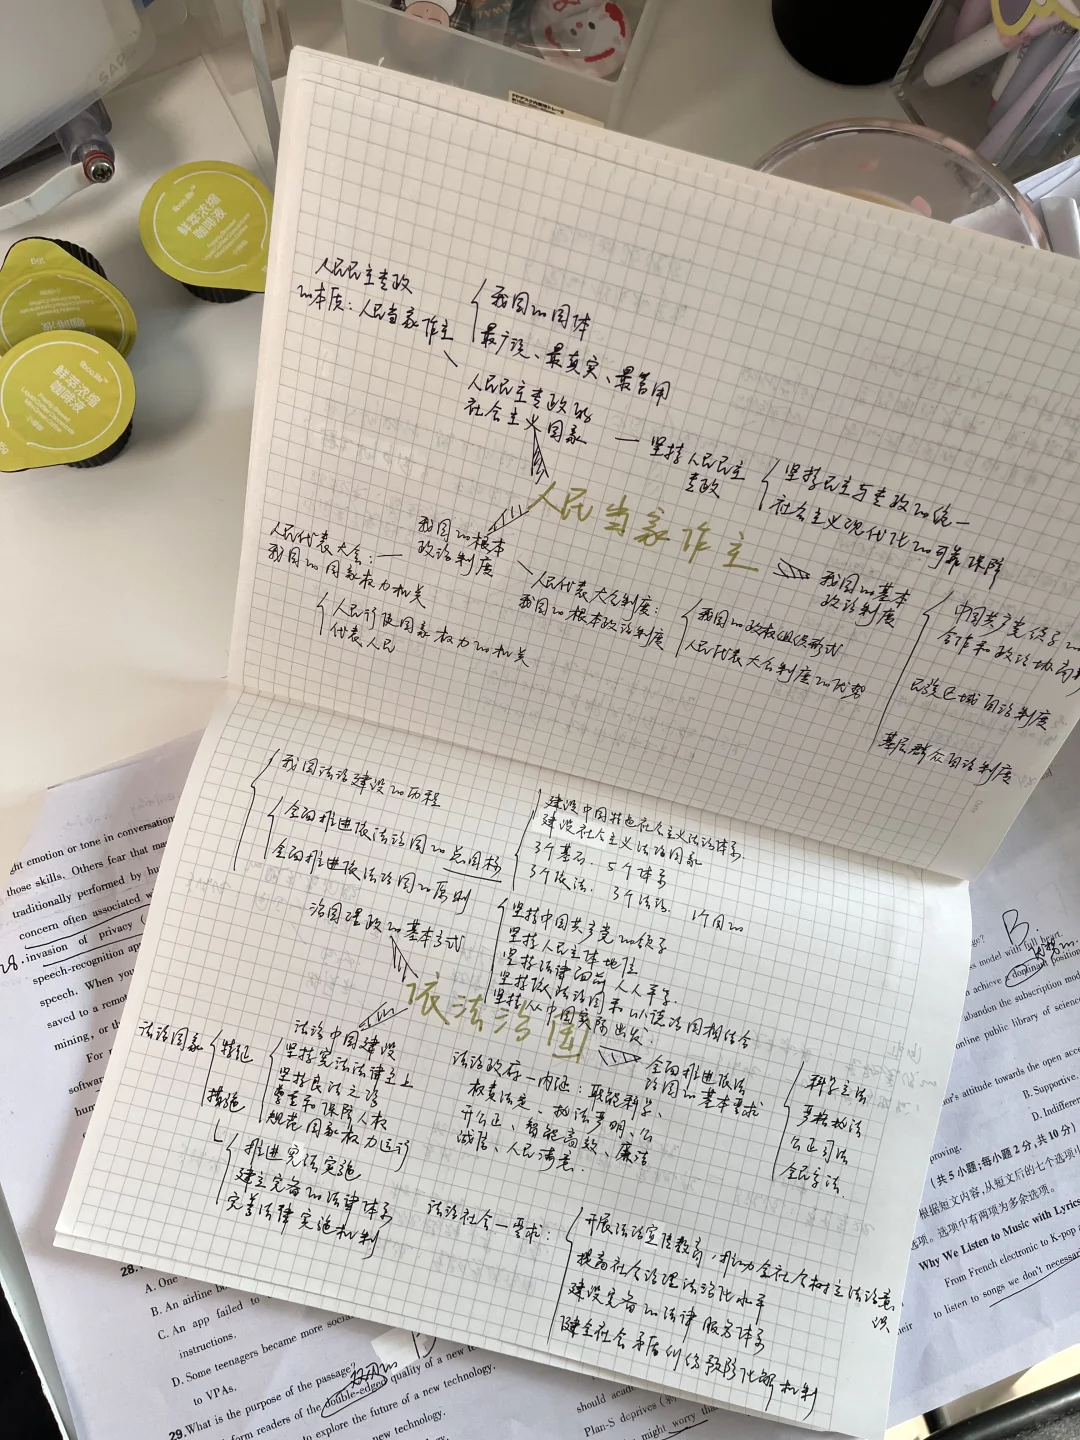 鲜萃浓缩
咖啡液
鲜萃浓缩
咖啡液
人民民主专政
的本质：人民当家作主
我国的国体
最广泛、最真实、最管用
人民民主专政的
社会主义国家
坚持人民民主
专政
坚持民主与专政的统一
社会主义现代化的可靠保障
人民当家作主
我国的根本
政治制度
人民代表大会：
我国的国家权力机关
人民行使国家权力的机关
代表人民
人民代表大会制度：
我国的根本政治制度
我国的政权组织形式
人民代表大会制度的优势
我国的基本
政治制度
中国共产党领导的
合作和政治协商
民族区域自治制度
基层群众自治制度
我国法治建设的历程
全面推进依法治国的总目标
全面推进依法治国的原则
建设中国特色社会主义法治体系
建设社会主义法治国家
3个基石. 5个体系
3个依法. 3个法治. 1个目的
治国理政的基本方式
坚持中国共产党的领导
坚持人民主体地位
坚持法律面前人人平等
坚持依法治国和以德治国相结合
坚持从中国实际出发.
依法治国
法治中国建设
法治国家
特征
坚持宪法法律至上
坚持良法之治
尊重和保障人权
规范国家权力运行
措施
推进宪法实施
建立完备的法律体系
完善法律实施机制
法治政府一内涵：职能科学、
权责法定、执法严明、公
开公正、智能高效、廉洁
诚信、人民满意.
全面推进依法
治国的基本要求
科学立法
严格执法
公正司法
全民守法.
法治社会一要求：
开展法治宣传教育，推动全社会树立法治意
识
提高社会治理法治化水平
建设完备的法律服务体系
健全社会矛盾纠纷预防化解机制
ght emotion or tone in conversation
those skills. Others fear that ma
traditionally performed by hu
concern often associated w
28.
invasion of privacy (
speech-recognition ap
speech. When you
saved to a remot
mining, or th
For
softwar
hum
28.
A. One
B. An airline b
C. An app failed to
instructions.
D. Some teenagers became more social
to VPAs.
29.What is the purpose of the passage?
D
双刃的
form readers of the double-edged quality of a new te
to explore the future of a new technology.
w technology.
B.
ss model with full heart.
achieve a dominant position
abandon the subscription mod
online public library of science
or's attitude towards the open acce
B. Supportive.
D. Indifferen
proving.
(共5小题;每小题2分,共10分)
根据短文内容,从短文后的七个选项中
选项。选项中有两项为多余选项。
Why We Listen to Music with Lyrics
From French electronic to K-pop a
to listen to songs we don't necessar
their
should acade
Plan-S deprives
might worry that